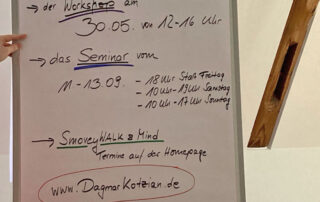 → der Workshop am
30.05. von 12-16 Uhr
→ das Seminar vom
11-13.09.
- 18 Uhr Start Freitag
- 10 Uhr - 19 Uhr Samstag
- 10 Uhr - 17 Uhr Sonntag
→ SmoveyWALK & Mind
Termine auf der Homepage
www.DagmarKotzian.de